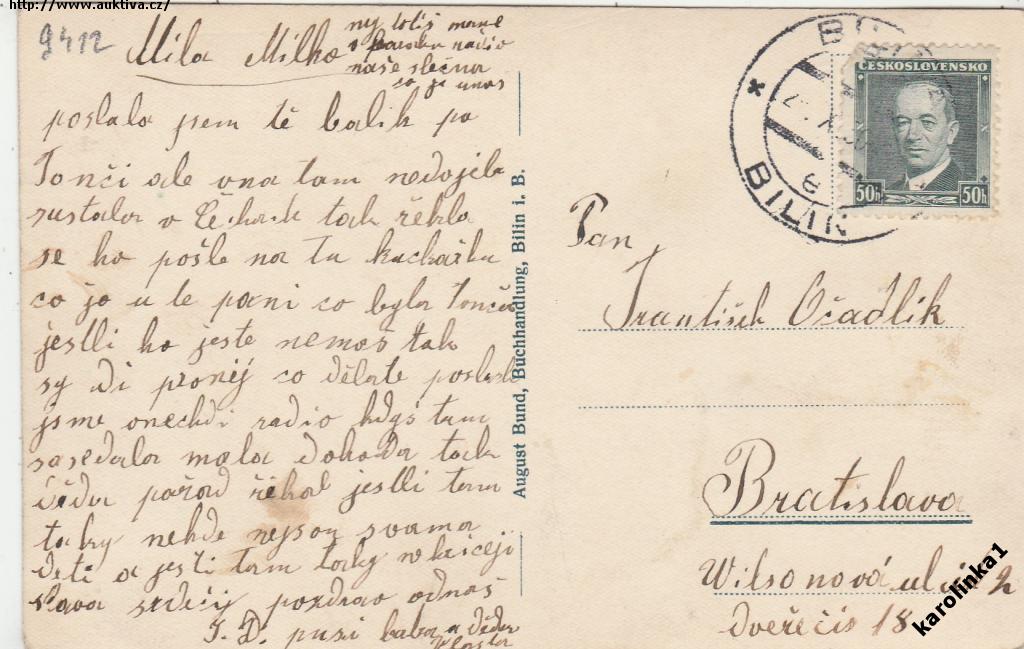 http://www.auktiva.cz/
9412
Milá Milko
ny totiš mame
radio
naše slečna
co je unas
poslala jsem tě balik po
Tonči ale ona tam nedojela
sustala v Čehach tak řekla
se ho pošle na tu kuchařku
co jo u te pani co byla Tonča
jestli ho ješte nemaš tak
sy di proněj co dělate
jsme onechdi radio kdyš tam
sasedala mala dohoda tak
děda pořad řikal jestli tam
taky nekde nejsou svama
deti a jesti tam taky nekřičeji
slava srdečý pozdrav odnaš
J. D. pusi baba a děda
August Bund, Buchhandlung, Bilin i. B.
ČESKOSLOVENSKO
50h
50h
BILIN
BÍLINA
8
Pan
František Očadlík
Bratislava
Wilsonová ulice
dveřečis 18
karolinka1